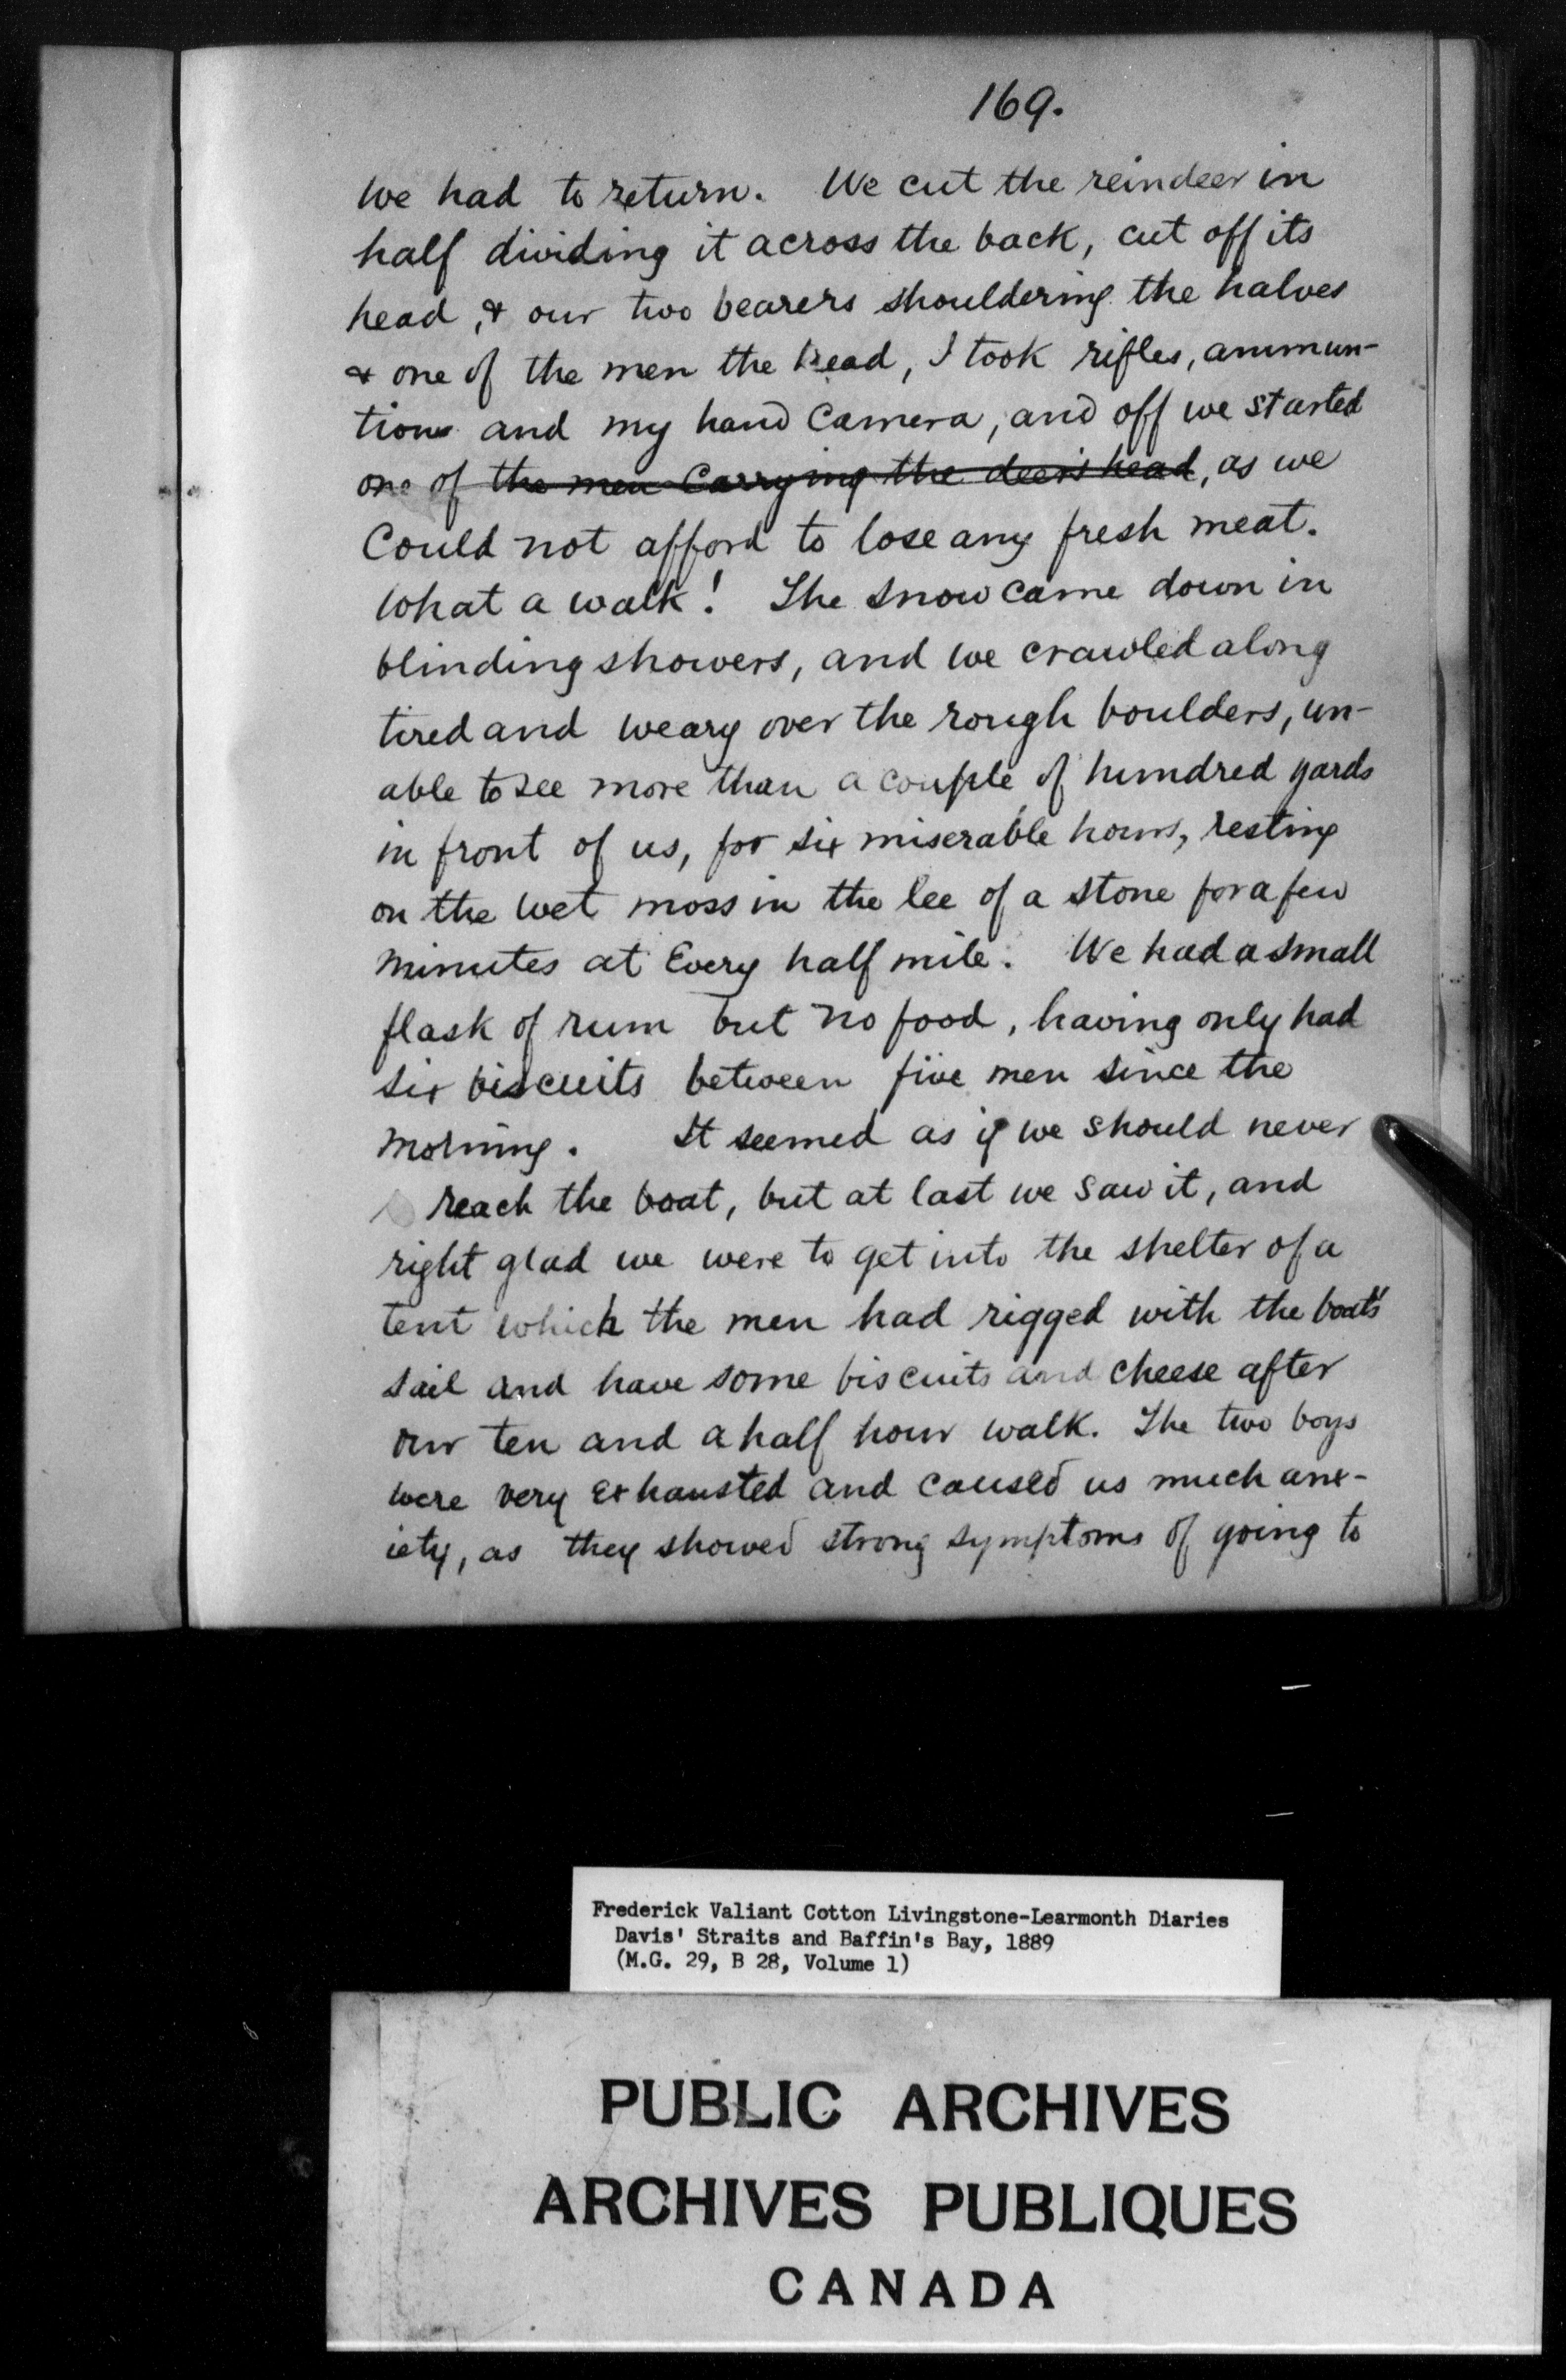 169.
we had to return. We cut the reindeer in
half dividing it across the back, cut off its
head, & our two bearers shouldering the halves
& one of the men the head, I took rifles, ammun-
tions and my hand camera, and off we started
one of the men carrying the deer's head, as we
could not afford to lose any fresh meat.
What a walk! The snow came down in
blinding showers, and we crawled along
tired and weary over the rough boulders, un-
able to see more than a couple of hundred yards
in front of us, for six miserable hours, resting
on the wet moss in the lee of a stone for a few
minutes at every half mile. We had a small
flask of rum but no food, having only had
six biscuits between five men since the
morning. It seemed as if we should never
reach the boat, but at last we saw it, and
right glad we were to get into the shelter of a
tent which the men had rigged with the boats'
sail and have some biscuits and cheese after
our ten and a half hour walk. The two boys
were very exhausted and caused us much anx-
iety, as they showed strong symptoms of going to
Frederick Valiant Cotton Livingstone-Learmonth Diaries
Davis' Straits and Baffin's Bay, 1889
(M.G. 29, B 28, Volume 1)
PUBLIC ARCHIVES
ARCHIVES PUBLIQUES
CANADA